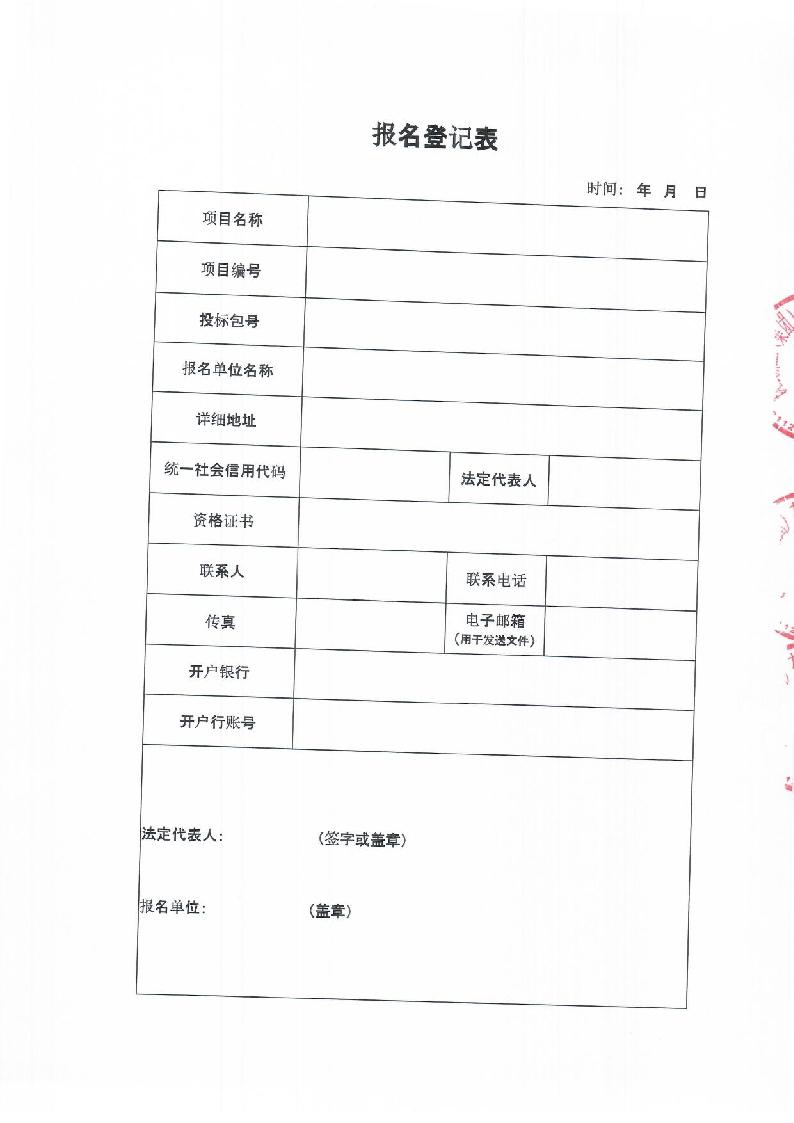 报名登记表
时间： 年 月 日
项目名称
项目编号
投标包号
报名单位名称
详细地址
统一社会信用代码 法定代表人
资格证书
联系人 联系电话
传真 电子邮箱
（用于发送文件）
开户银行
开户行账号
法定代表人： （签字或盖章）
报名单位： （盖章）